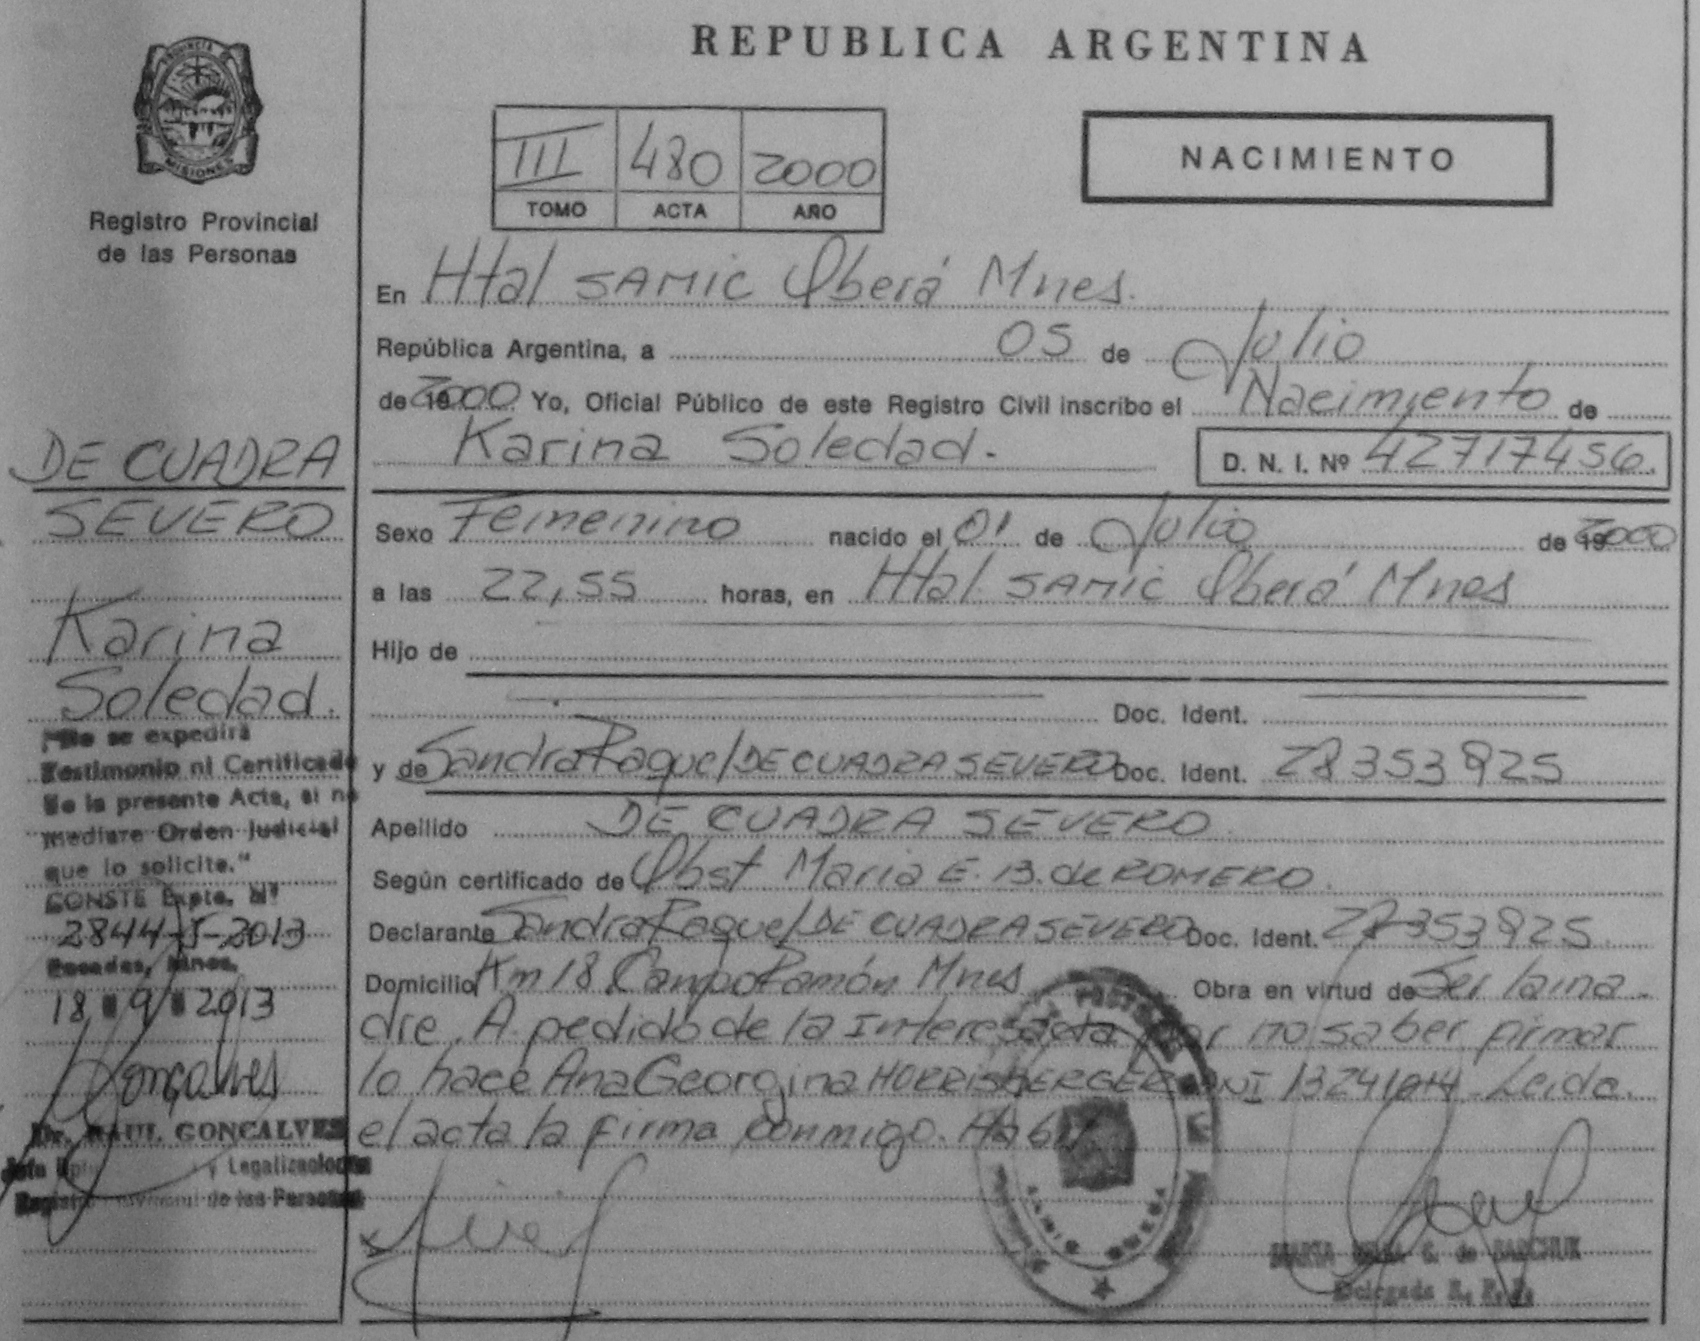 PROVINCIA
MISIONES
Registro Provincial
de las Personas
DE CUADRA
SEVERO
Karina
Soledad.
"No se expedirá
Testimonio ni Certificado
de la presente Acta, si no
mediare Orden Judicial
que lo solicite."
CONSTE Expte. Nº
2844-S-2013
Posadas, Mnes.
18 9 2013
Gonçalves
Dr. RAUL GONCALVES
y Legalizaciones
Registro Provincial de las Personas
REPUBLICA ARGENTINA
III 480 2000
TOMO ACTA AÑO
NACIMIENTO
En Htal SAMIC Oberá Mnes.
República Argentina, a 05 de Julio
de 2000 Yo, Oficial Público de este Registro Civil inscribo el Nacimiento de
Karina Soledad. D. N. I. Nº 42717456.
Sexo Femenino nacido el 01 de Julio de 2000
a las 22,55 horas, en Htal SAMIC Oberá Mnes
Hijo de
Doc. Ident.
y de Sandra Raquel DE CUADRA SEVERO Doc. Ident. 28353925
Apellido DE CUADRA SEVERO
Según certificado de Obst Maria E. B. de ROMERO.
Declarante Sandra Raquel DE CUADRA SEVERO Doc. Ident. 28353925
Domicilio Km 18 Campo Ramón Mnes Obra en virtud de Ser la ma-
dre. A pedido de la Interesada por no saber firmar
lo hace Ana Georgina HORRISBERGER DNI 13241014. Leida
el acta la firma conmigo.
de BABCHUK
Delegada R. P. P.